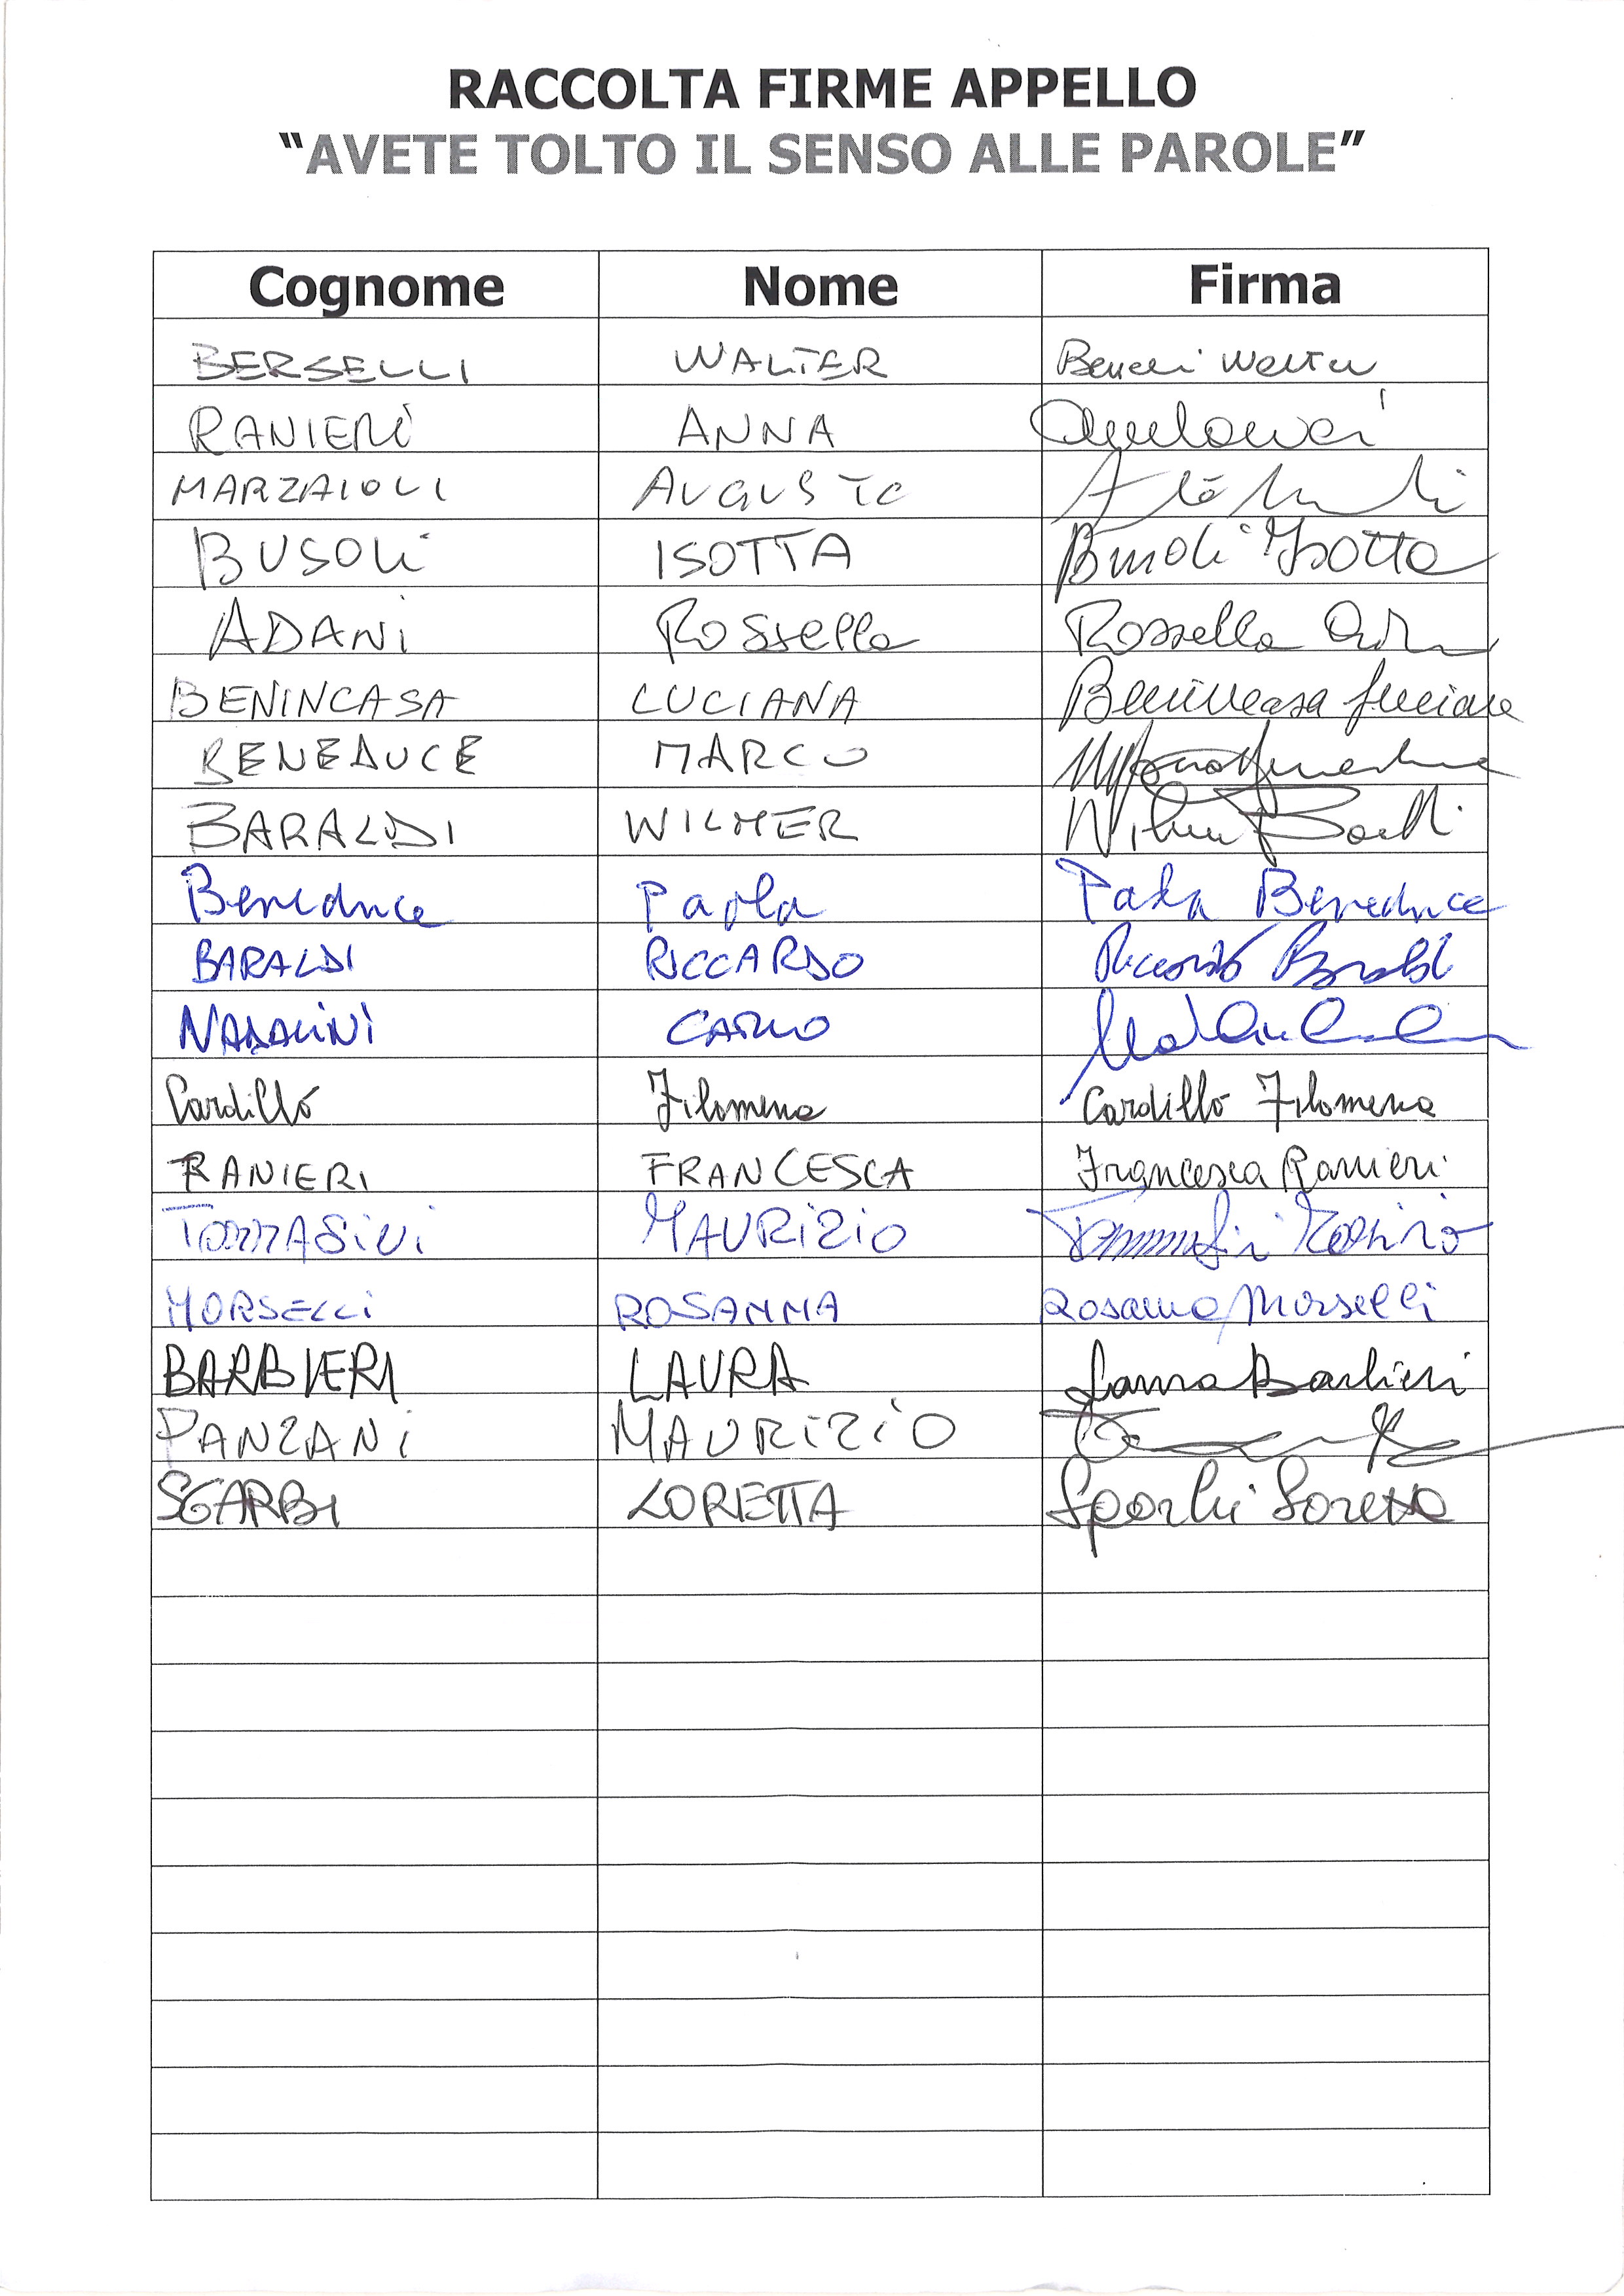 RACCOLTA FIRME APPELLO
“AVETE TOLTO IL SENSO ALLE PAROLE”
Cognome Nome Firma
BERSELLI WALTER Berselli Walter
RANIERI ANNA
MARZAIOLI AUGUSTO
BUSOLI ISOTTA Busoli Isotta
ADANI Rossella Rossella
BENINCASA LUCIANA Benincasa Luciana
BENEDUCE MARCO
BARALDI WILMER Wilmer
Beneduce Paola Paola Beneduce
BARALDI RICCARDO Riccardo Baraldi
NADALINI CARLO
Cardillo Filomena Cardillo Filomena
RANIERI FRANCESCA Francesca Ranieri
MAURIZIO
MORSELLI ROSANNA Rosanna Morselli
BARBIERI LAURA Laura Barbieri
PANZANI MAURIZIO
SGARBI LORETTA Sgarbi Loretta